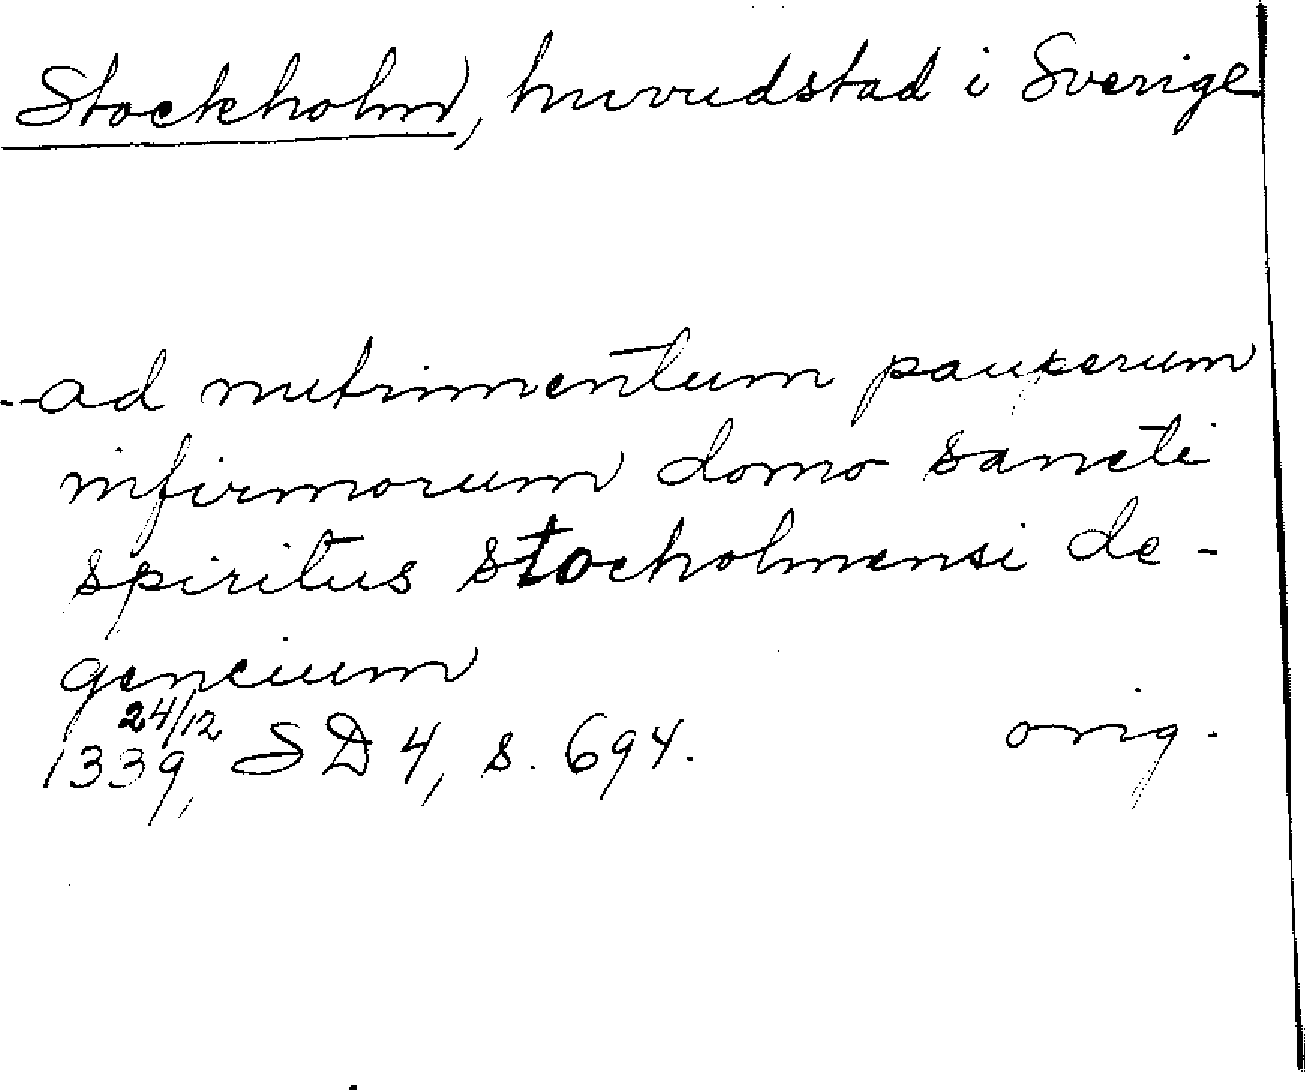 Stockholm, huvudstad i Sverige
-ad nutrimentum pauperum
infirmorum domo sancti
spiritus stocholmensi de-
gencium
24/12
1339, SD 4, s. 694. orig.